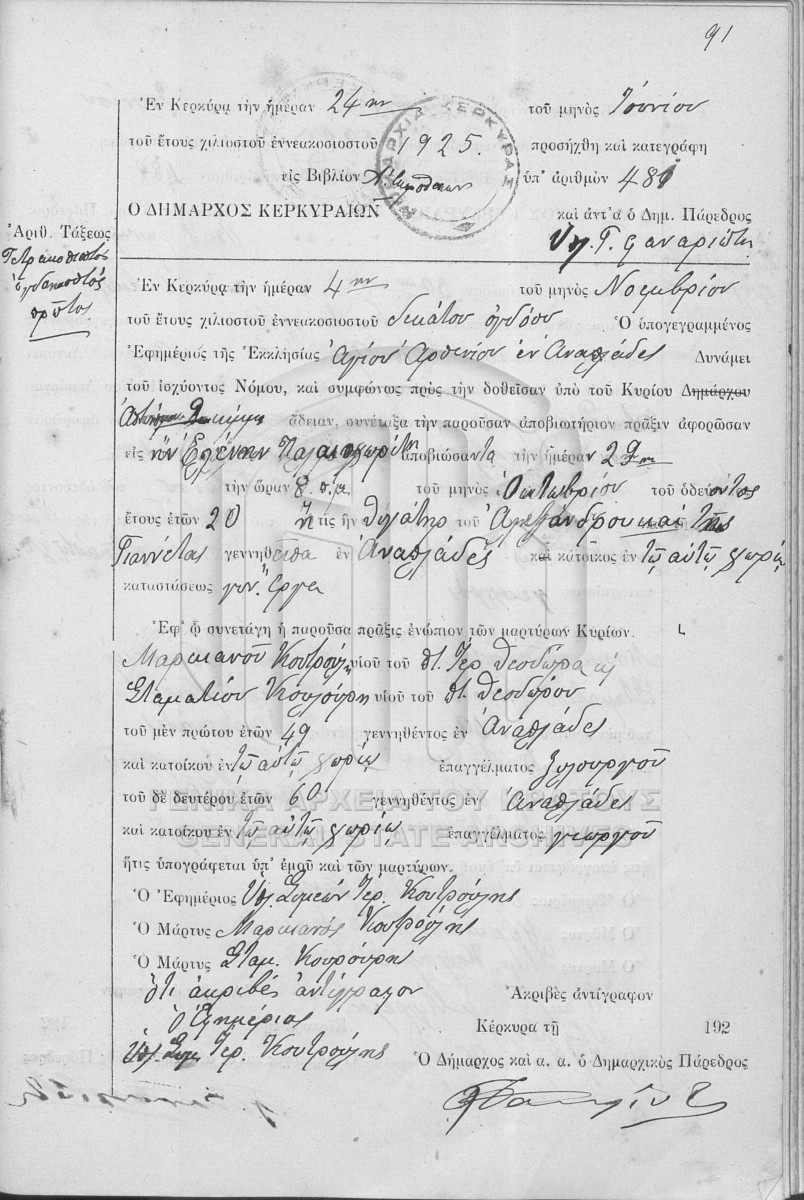 91
Ἐν Κερκύρᾳ τὴν ἡμέραν 24ην τοῦ μηνὸς Ἰουνίου
τοῦ ἔτους χιλιοστοῦ ἐννεακοσιοστοῦ 1925. προσήχθη καὶ κατεγράφη
εἰς Βιβλίον ὑπ' ἀριθμὸν 481
Ο ΔΗΜΑΡΧΟΣ ΚΕΡΚΥΡΑΙΩΝ καὶ ἀντ' α ὁ Δημ. Πάρεδρος
ΔΗΜΑΡΧΙΑ ΚΕΡΚΥΡΑΣ
Ἀριθ. Τάξεως
Τετρακοσιοστος
ὀγδοηκοστός
πρῶτος
Ὑπ. Γ. Φαναριώτη
Ἐν Κερκύρᾳ τὴν ἡμέραν 4ην τοῦ μηνὸς Νοεμβρίου
τοῦ ἔτους χιλιοστοῦ ἐννεακοσιοστοῦ δεκάτου ὀγδόου Ὁ ὑπογεγραμμένος
Ἐφημέριος τῆς Ἐκκλησίας Ἁγίου Ἀρσενίου ἐν Αναπλάδες Δυνάμει
τοῦ ἰσχύοντος Νόμου, καὶ συμφώνως πρὸς τὴν δοθεῖσαν ὑπὸ τοῦ Κυρίου Δημάρχου
ἄδειαν, συνέταξα τὴν παροῦσαν ἀποβιωτήριον πρᾶξιν ἀφορῶσαν
εἰς τὴν Ἑλένην Παλαιοχωρίτη ἀποβιώσαντα τὴν ἡμέραν 29η
τὴν ὥραν 8 π.μ. τοῦ μηνὸς Ὀκτωβρίου τοῦ ὁδεύοντος
ἔτους ἐτῶν 20 ἥτις ἦν θυγάτηρ τοῦ Ἀλεξάνδρου καὶ τῆς
Γιαννέτας γεννηθεῖσα ἐν Ἀναπλάδες καὶ κάτοικος ἐν τῷ αὐτῷ χωρίῳ
καταστάσεως
Ἐφ' ᾧ συνετάγη ἡ παροῦσα πρᾶξις ἐνώπιον τῶν μαρτύρων Κυρίων.
Μαρκιανοῦ Κουτρούλη υἱοῦ τοῦ π. Ἱερ. Θεοδώρα
Σταματίου Κουλούρη υἱοῦ τοῦ π. Θεοδώρου
τοῦ μὲν πρώτου ἐτῶν 49 γεννηθέντος ἐν Ἀναπλάδες
καὶ κατοίκου ἐν τῷ αὐτῷ χωρίῳ ἐπαγγέλματος ξυλουργοῦ
τοῦ δὲ δευτέρου ἐτῶν 60 γεννηθέντος ἐν Ἀναπλάδες
ΓΕΝΙΚΑ ΑΡΧΕΙΑ ΤΟΥ ΚΡΑΤΟΥΣ
καὶ κατοίκου ἐν τῷ αὐτῷ χωρίῳ ἐπαγγέλματος γεωργοῦ
GENERAL STATE ARCHIVES
ἥτις ὑπογράφεται ὑπ' ἐμοῦ καὶ τῶν μαρτύρων.
Ὁ Ἐφημέριος Ὑπ. Συμεών Ἱερ. Κουτρούλης
Ὁ Μάρτυς Μαρκιανός Κουτρούλης
Ὁ Μάρτυς Σταμ. Κουλούρης
Ὅτι ἀκριβές ἀντίγραφον Ἀκριβὲς ἀντίγραφον
ὁ Ἐφημέριος Κέρκυρα τῇ 192
Ὑπ. Συμ. Ἱερ. Κουτρούλης Ὁ Δήμαρχος καὶ α. α. ὁ Δημαρχικὸς Πάρεδρος